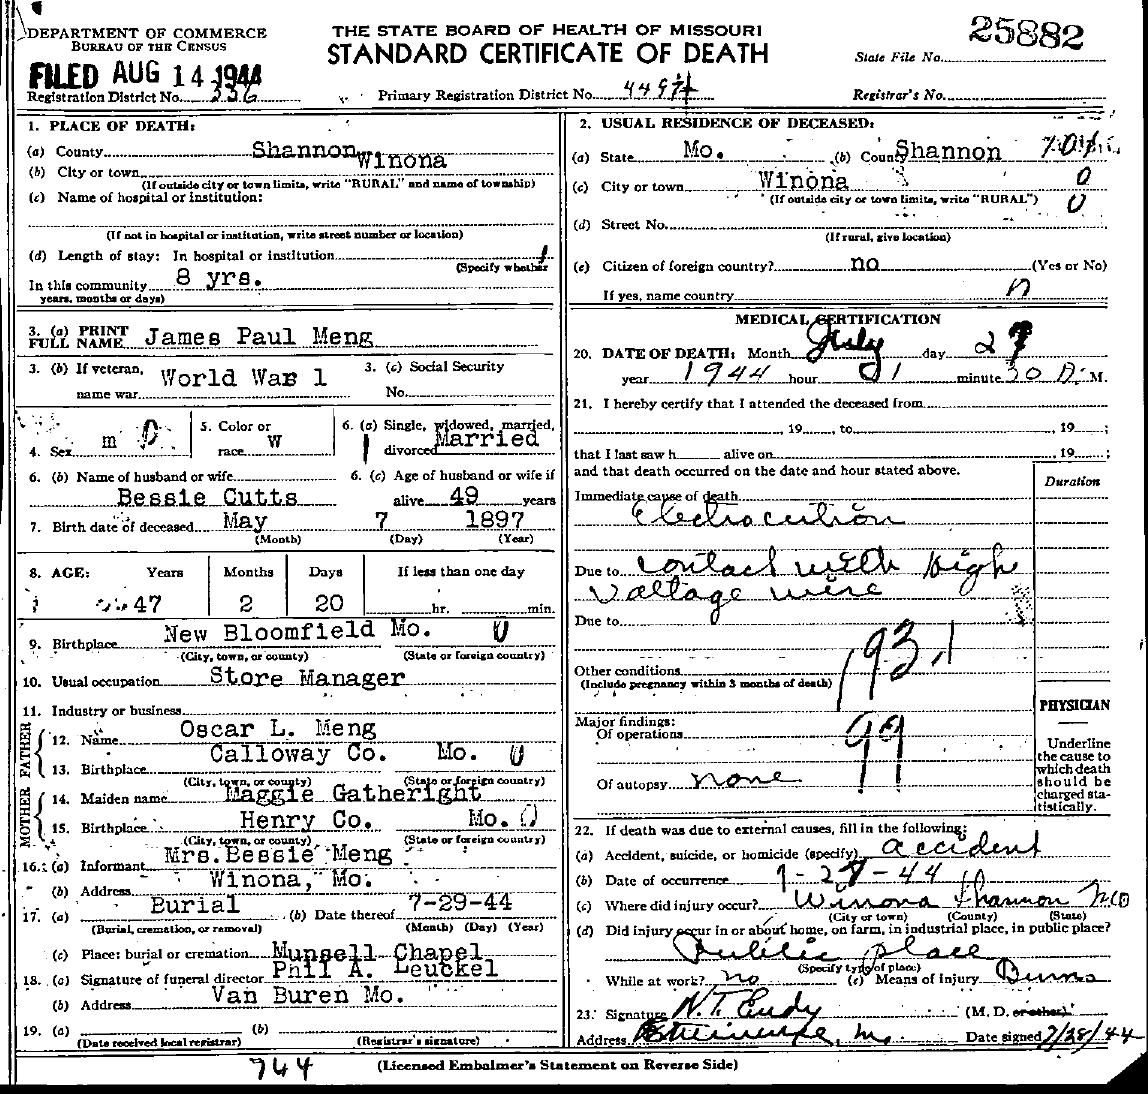 DEPARTMENT OF COMMERCE
BUREAU OF THE CENSUS
FILED AUG 14 1944
Registration District No. 336
THE STATE BOARD OF HEALTH OF MISSOURI
STANDARD CERTIFICATE OF DEATH
Primary Registration District No. 4497
25882
State File No.
Registrar's No.
1. PLACE OF DEATH:
(a) County Shannon
(b) City or town Winona
(If outside city or town limits, write "RURAL" and name of township)
(c) Name of hospital or institution:
(If not in hospital or institution, write street number or location)
(d) Length of stay: In hospital or institution
(Specify whether
In this community 8 yrs.
years, months or days)
3. (a) PRINT FULL NAME James Paul Meng
3. (b) If veteran, name war World War 1
3. (c) Social Security No.
4. Sex m 0
5. Color or race W
6. (a) Single, widowed, married, divorced Married
6. (b) Name of husband or wife Bessie Cutts
6. (c) Age of husband or wife if alive 49 years
7. Birth date of deceased May 7 1897
(Month) (Day) (Year)
8. AGE: Years Months Days If less than one day
47 2 20 hr. min.
9. Birthplace New Bloomfield Mo. 0
(City, town, or county) (State or foreign country)
10. Usual occupation Store Manager
11. Industry or business
FATHER
12. Name Oscar L. Meng
13. Birthplace Calloway Co. Mo. 0
(City, town, or county) (State or foreign country)
MOTHER
14. Maiden name Maggie Gatheright
15. Birthplace Henry Co. Mo. 0
(City, town, or county) (State or foreign country)
16. (a) Informant Mrs. Bessie Meng
(b) Address Winona, Mo.
17. (a) Burial (b) Date thereof 7-29-44
(Burial, cremation, or removal) (Month) (Day) (Year)
(c) Place: burial or cremation Munsell Chapel
18. (a) Signature of funeral director Phil A. Leuckel
(b) Address Van Buren Mo.
19. (a) (b)
(Date received local registrar) (Registrar's signature)
2. USUAL RESIDENCE OF DECEASED:
(a) State Mo. (b) County Shannon
(c) City or town Winona 0
(If outside city or town limits, write "RURAL") 0
(d) Street No.
(If rural, give location)
(e) Citizen of foreign country? no (Yes or No)
If yes, name country
MEDICAL CERTIFICATION
20. DATE OF DEATH: Month July day 27
year 1944 hour 01 minute 30 M.
21. I hereby certify that I attended the deceased from
, 19 , to , 19 ;
that I last saw h alive on , 19 ;
and that death occurred on the date and hour stated above.
Duration
Immediate cause of death
Electrocution
Due to contact with high
voltage wire
Due to
193.1
Other conditions
(Include pregnancy within 3 months of death)
Major findings:
Of operations
99
Of autopsy none
PHYSICIAN
Underline the cause to which death should be charged statistically.
22. If death was due to external causes, fill in the following:
(a) Accident, suicide, or homicide (specify) accident
(b) Date of occurrence 7-27-44
(c) Where did injury occur? Winona Shannon Mo
(City or town) (County) (State)
(d) Did injury occur in or about home, on farm, in industrial place, in public place?
Public place
(Specify type of place)
While at work? no (e) Means of injury Burns
23. Signature N.T. Eudy (M. D. or other)
Address Eminence, Mo. Date signed 7/28/44
744
(Licensed Embalmer's Statement on Reverse Side)